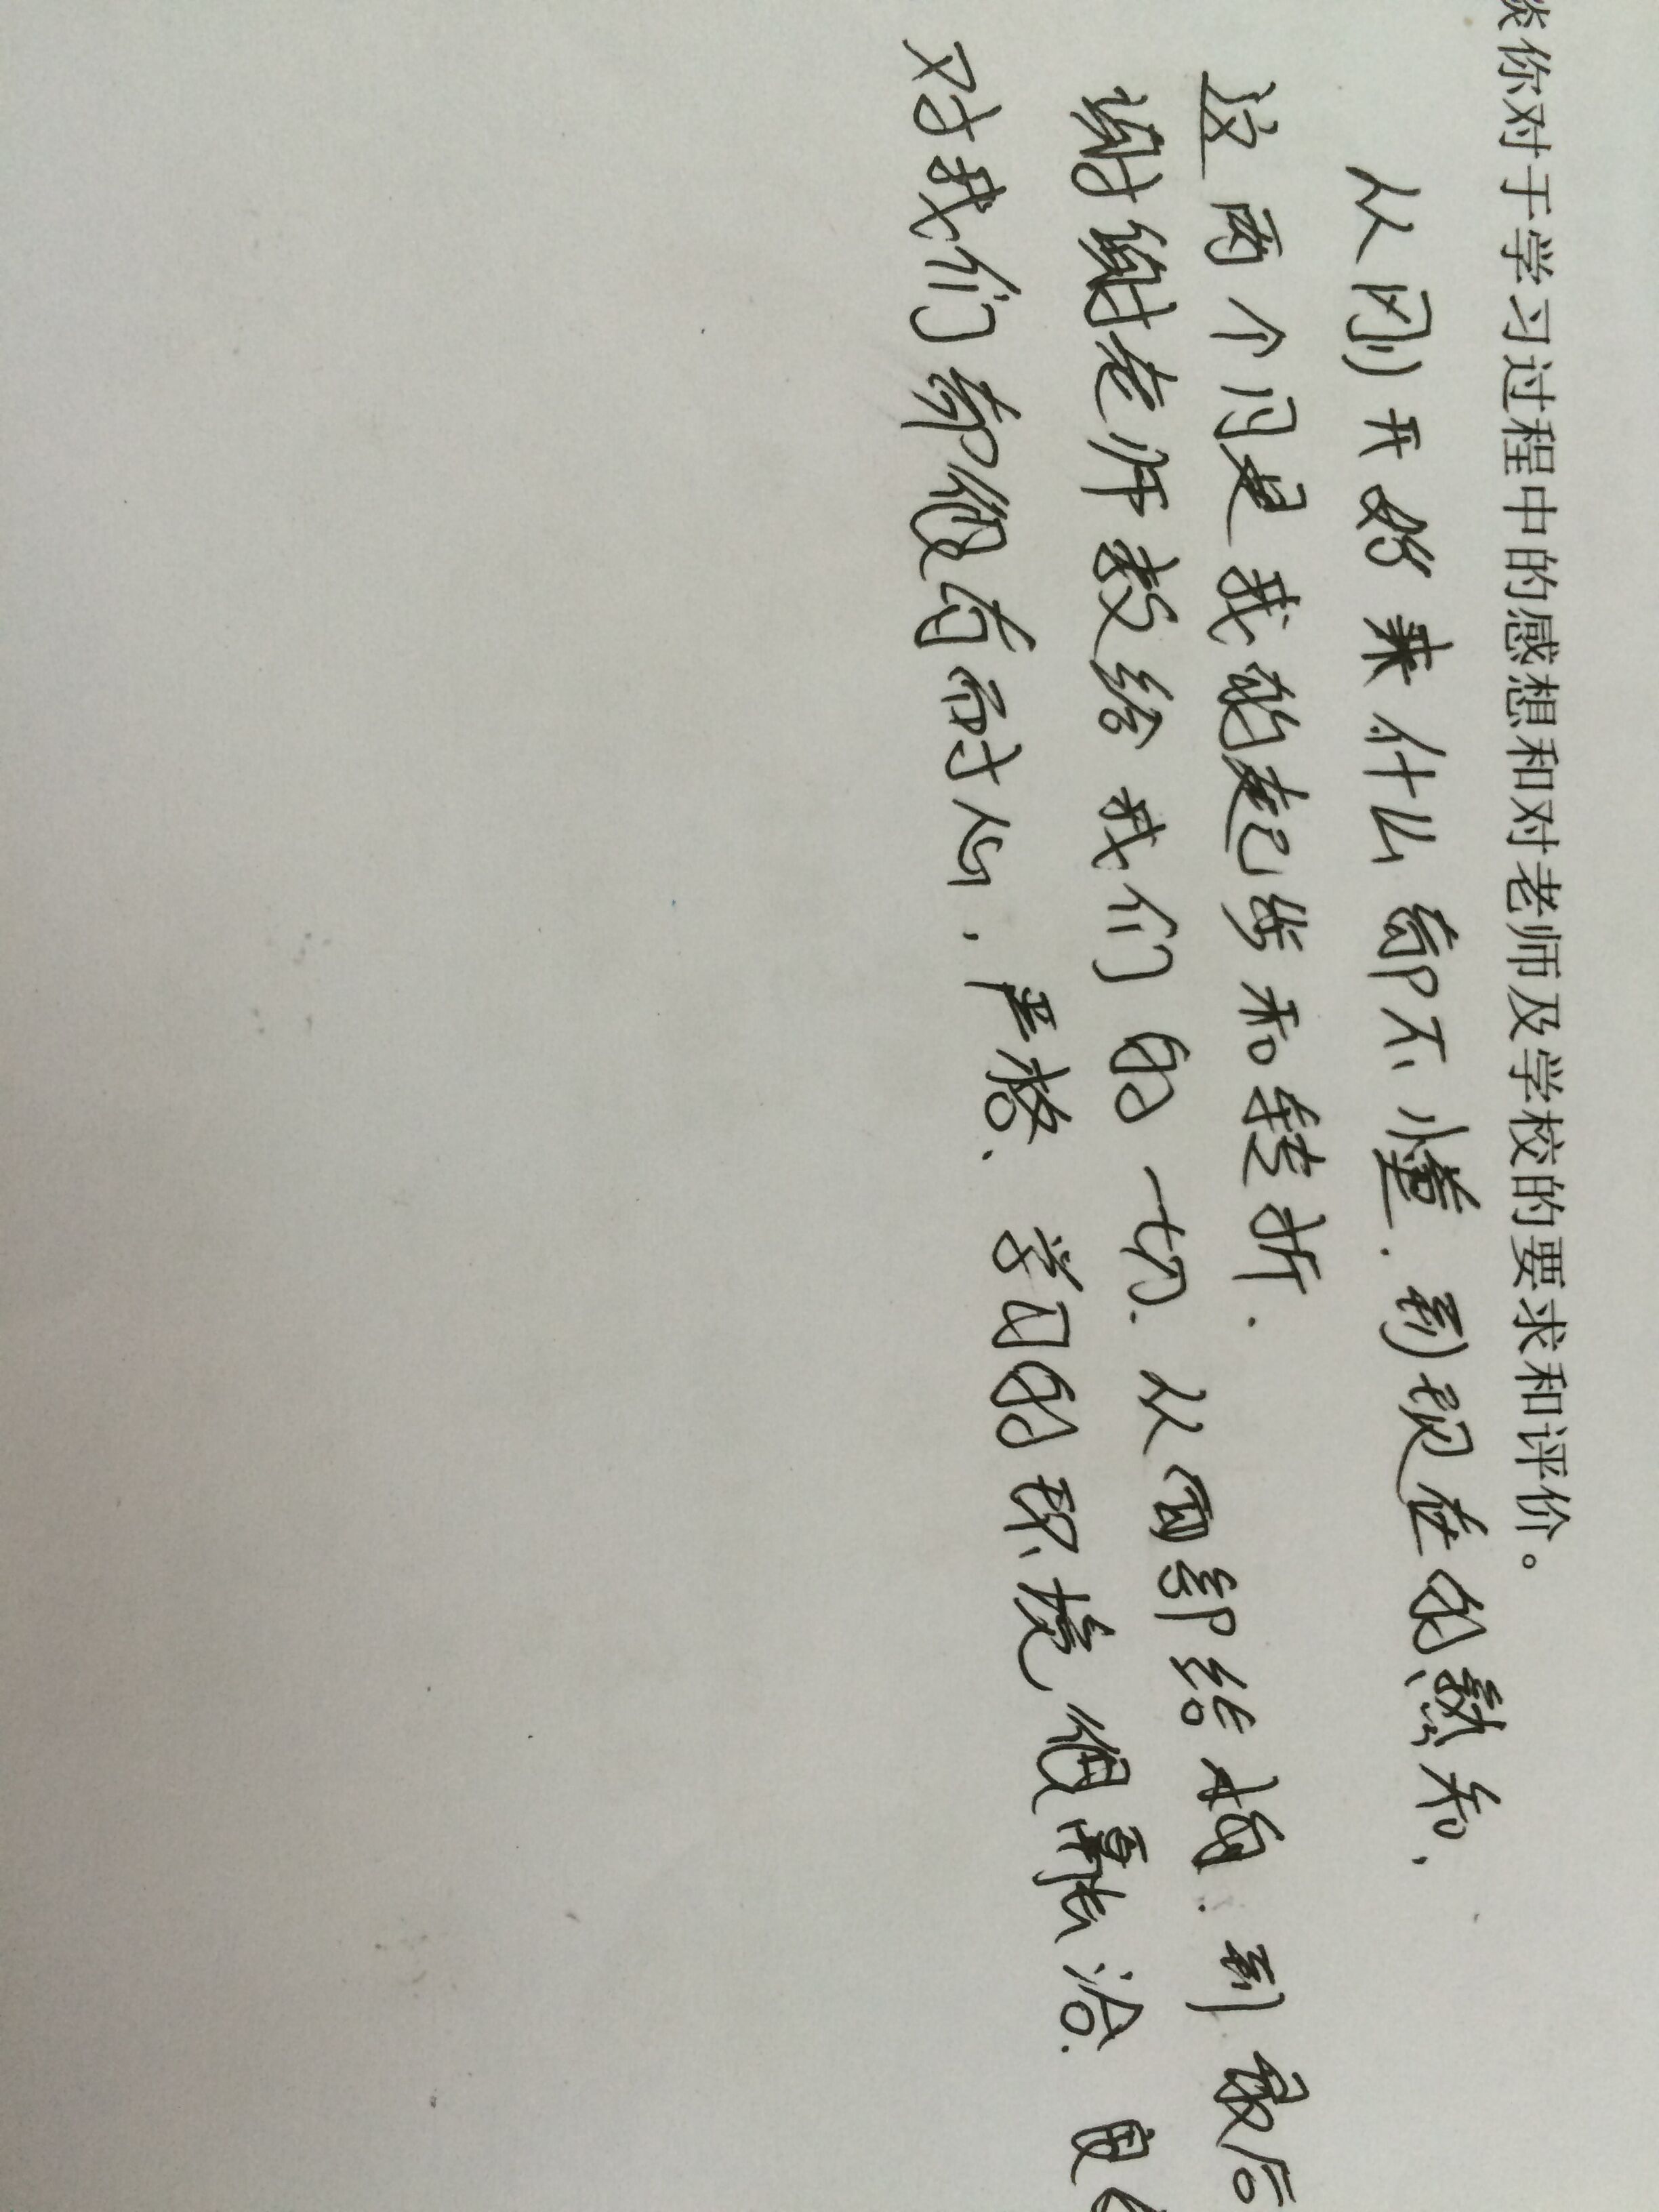 谈你对于学习过程中的感想和对老师及学校的要求和评价。
从刚开始来什么都不懂.到现在的熟和,
这两个月是我的起步和转折.
谢谢老师教给我们的一切.从面部结构.到最后
对我们都很有耐心,严格、学习的环境很融洽.